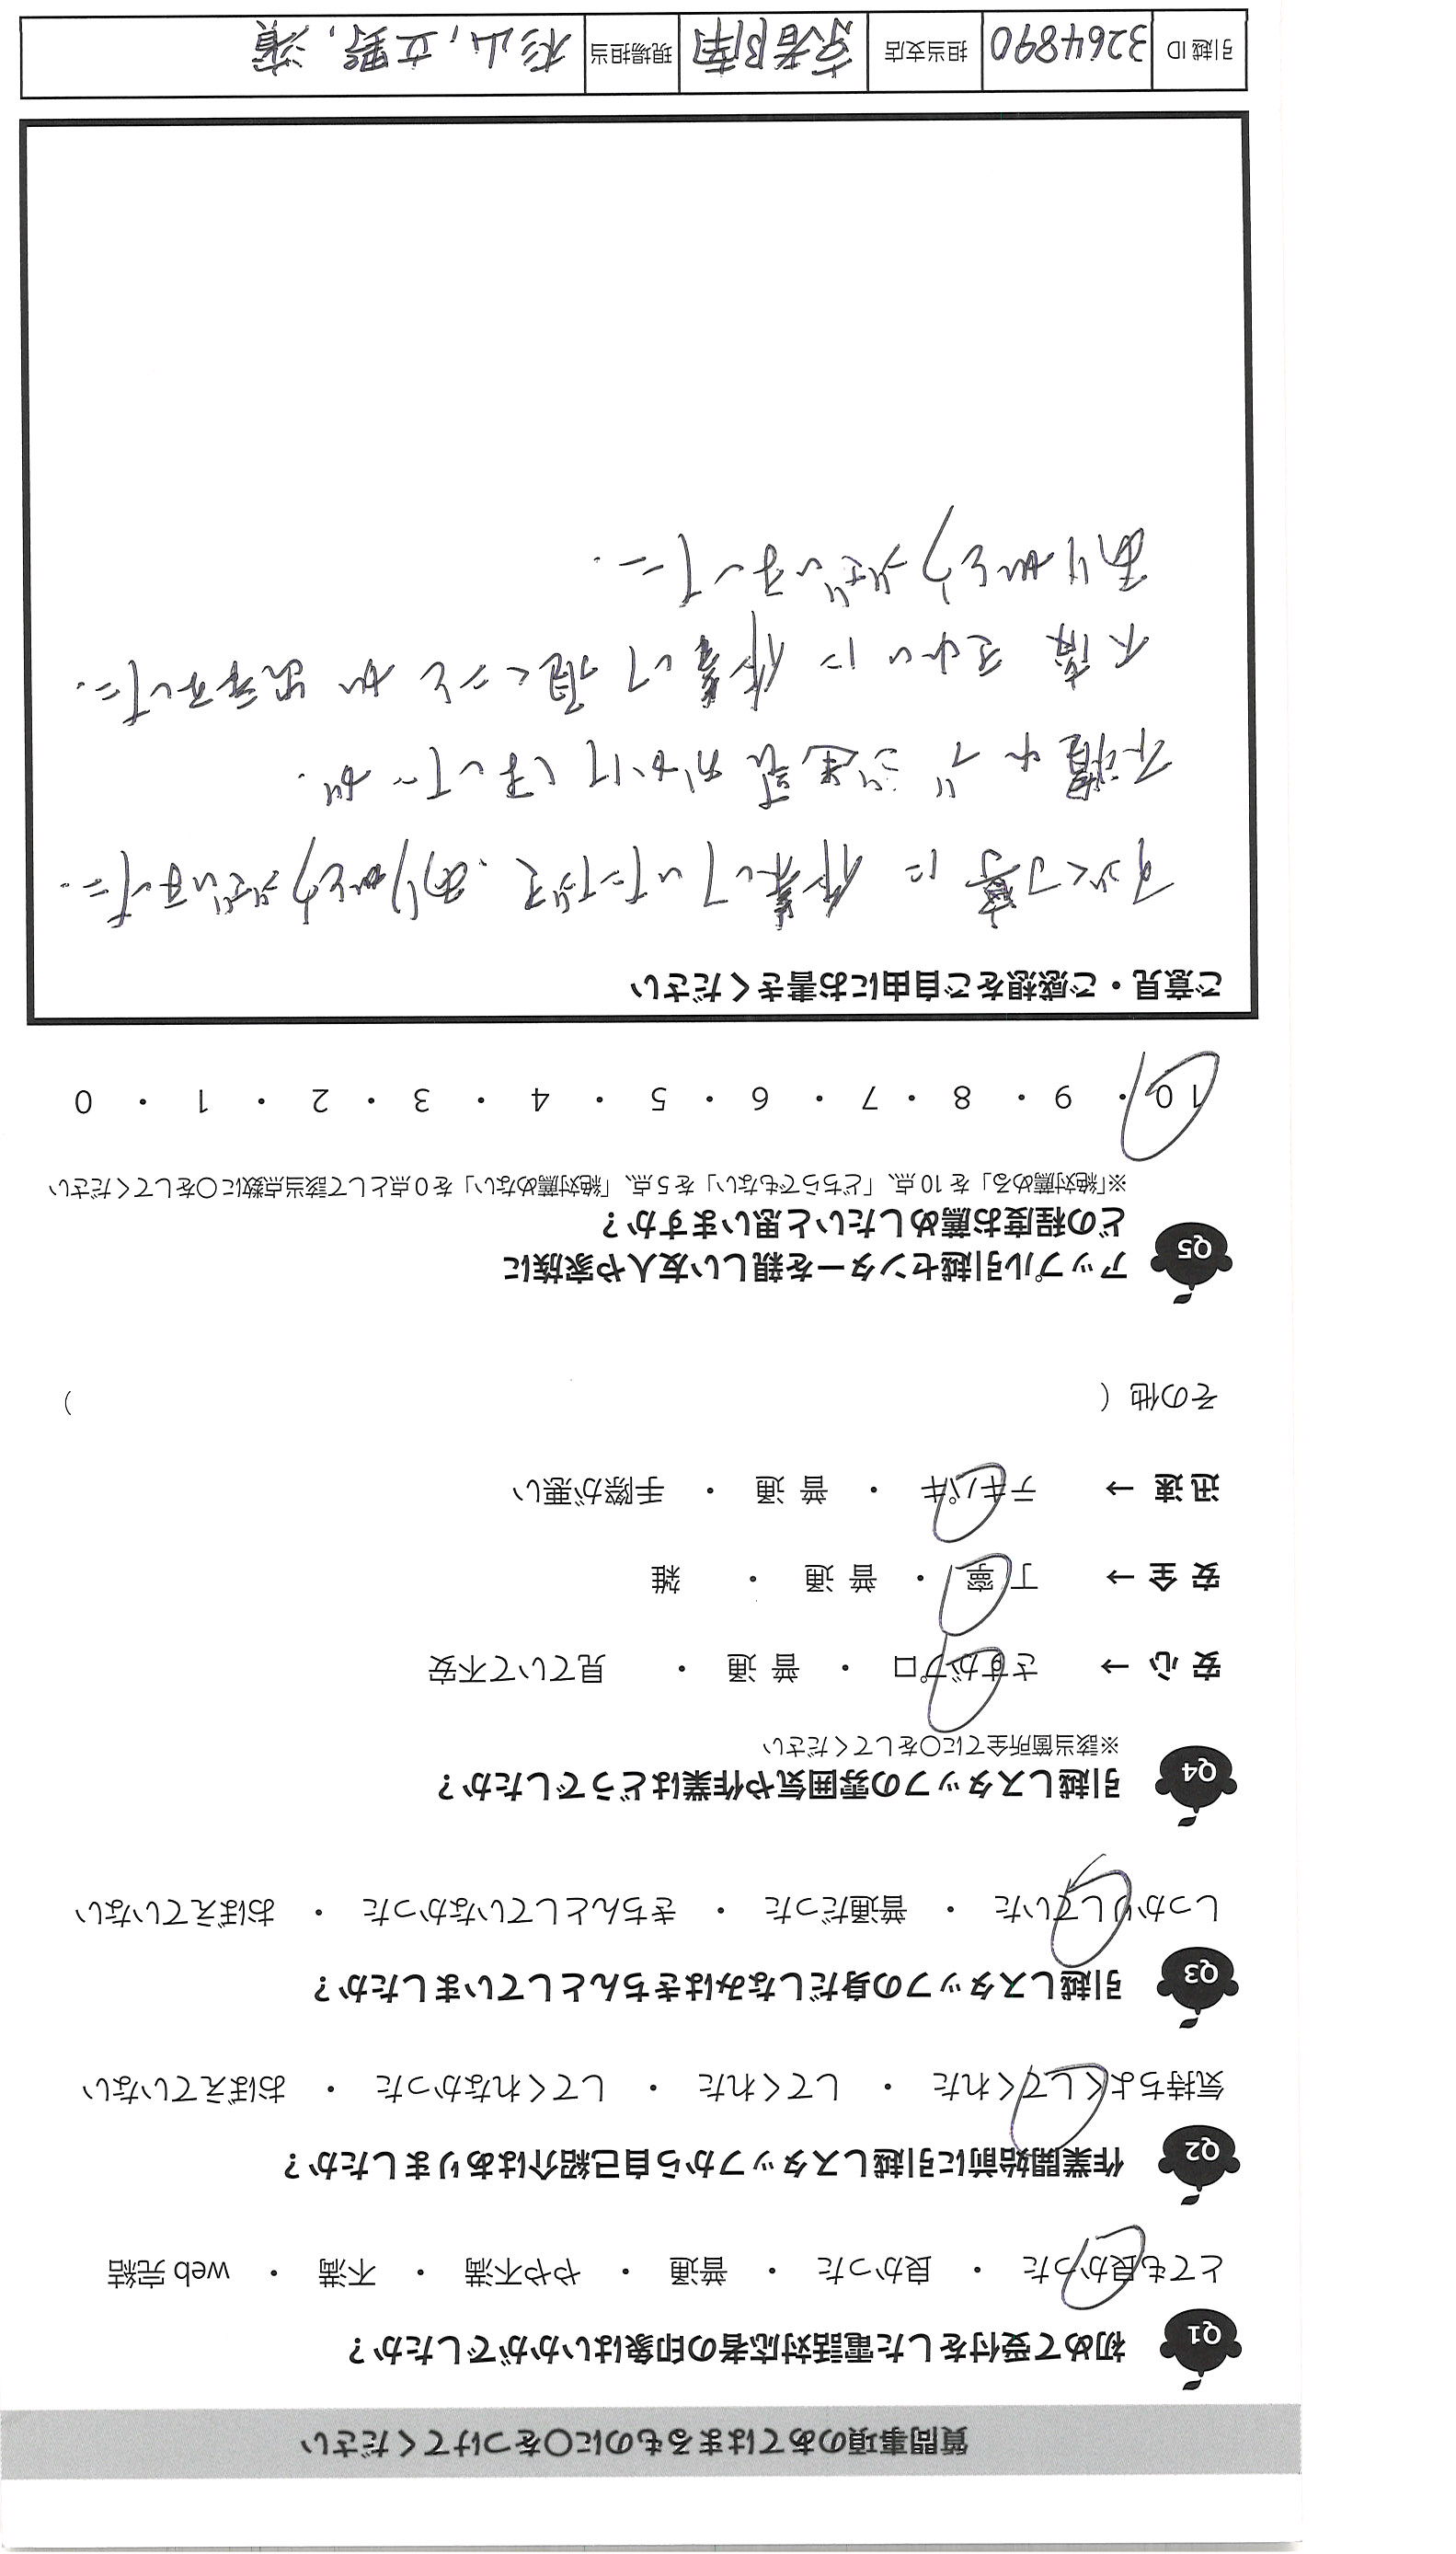 質問事項のあてはまるものに〇をつけてください
Q1 初めて受付をした電話対応者の印象はいかがでしたか？
とても良かった ・ 良かった ・ 普通 ・ やや不満 ・ 不満 ・ web完結
Q2 作業開始前に引越しスタッフから自己紹介はありましたか？
気持ちよくしてくれた ・ してくれた ・ してくれなかった ・ おぼえていない
Q3 引越しスタッフの身だしなみはきちんとしていましたか？
しっかりしていた ・ 普通だった ・ きちんとしていなかった ・ おぼえていない
Q4 引越しスタッフの雰囲気や作業はどうでしたか？
※該当箇所全てに〇をしてください
安心 → さすがプロ ・ 普通 ・ 見ていて不安
安全 → 丁寧 ・ 普通 ・ 雑
迅速 → テキパキ ・ 普通 ・ 手際が悪い
その他（ ）
Q5 アップル引越センターを親しい友人や家族に
どの程度お薦めしたいと思いますか？
※「絶対薦める」を10点、「どちらでもない」を5点、「絶対薦めない」を0点として該当点数に〇をしてください
10 ・ 9 ・ 8 ・ 7 ・ 6 ・ 5 ・ 4 ・ 3 ・ 2 ・ 1 ・ 0
ご意見・ご感想をご自由にお書きください
すごく丁寧に作業していただき、ありがとうございました.
不慣れで ご迷惑おかけしましたが、
不備なく 作業して頂くことが出来ました.
ありがとうございました.
引越ID 3264890 担当支店 京都南 現場担当 杉山, 立野, 濱